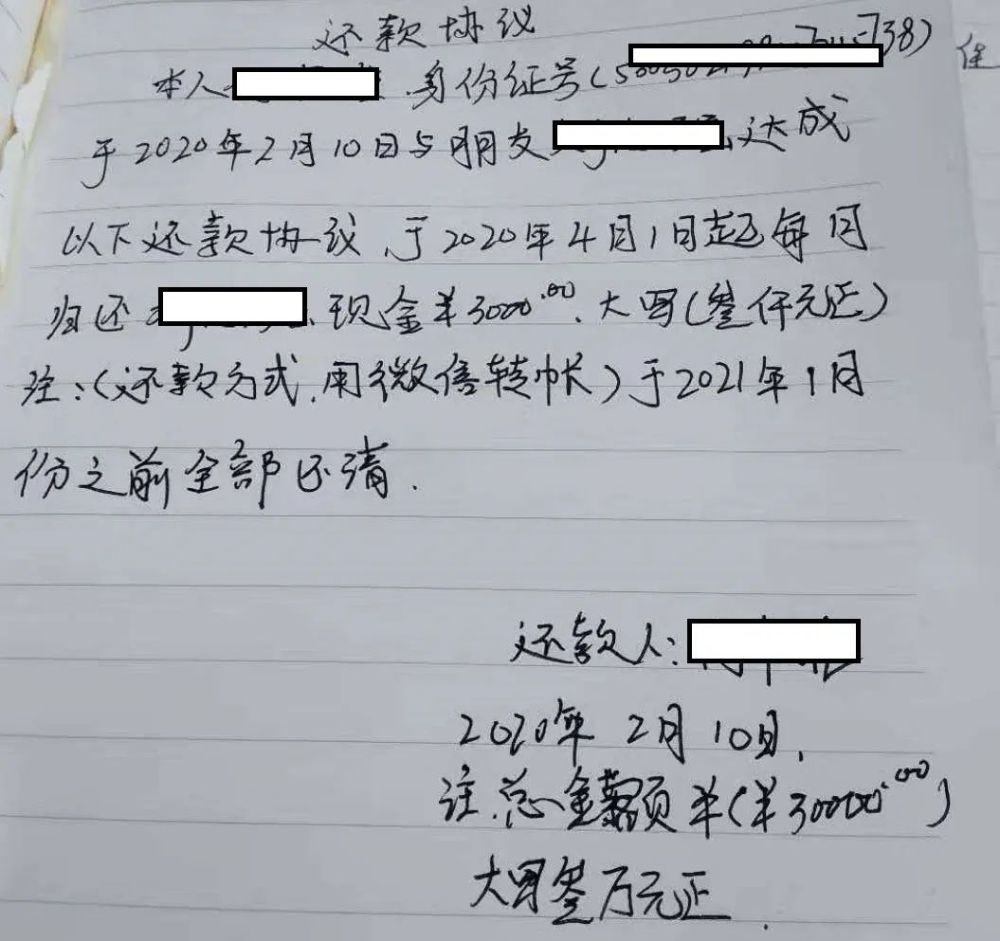 还款协议
本人 身份证号( 738) 住
于2020年2月10日与朋友 达成
以下还款协议,于2020年4月1日起每月
归还 现金¥3000.00.大写(叁仟元正)
注:(还款方式,用微信转帐)于2021年1月
份之前全部还清.
还款人:
2020年2月10日,
注.总金额¥(¥30000.00)
大写叁万元正